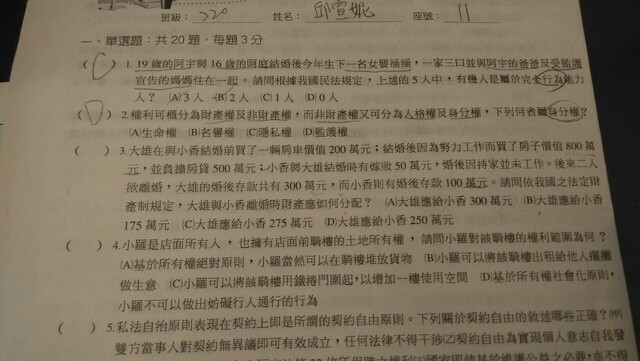 班級：220 姓名：邱宣妮 座號：11
一、單選題：共 20 題，每題 3 分
( C ) 1. 19 歲的阿宇與 16 歲的阿庭結婚後今年生下一名女嬰涵涵，一家三口並與阿宇的爸爸及受監護
宣告的媽媽住在一起。請問根據我國民法規定，上述的 5 人中，有幾人是屬於完全行為能力
人？ (A)3 人 (B)2 人 (C)1 人 (D)0 人
( D ) 2. 權利可概分為財產權及非財產權，而非財產權又可分為人格權及身分權，下列何者屬身分權？
(A)生命權 (B)名譽權 (C)隱私權 (D)監護權
( ) 3. 大雄在與小香結婚前買了一輛房車價值 200 萬元；結婚後因為努力工作而買了房子價值 800 萬
元，並負擔房貸 500 萬元；小香與大雄結婚時有嫁妝 50 萬元，婚後因持家並未工作。後來二人
欲離婚，大雄的婚後存款共有 300 萬元，而小香則有婚後存款 100 萬元。請問依我國之法定財
產制規定，大雄與小香離婚時財產應如何分配？ (A)大雄應給小香 300 萬元 (B)大雄應給小香
175 萬元 (C)大雄應給小香 275 萬元 (D)大雄應給小香 250 萬元
( ) 4. 小羅是店面所有人，也擁有店面前騎樓的土地所有權，請問小羅對該騎樓的權利範圍為何？
(A)基於所有權絕對原則，小羅當然可以在騎樓堆放貨物 (B)小羅可以將該騎樓出租給他人擺攤
做生意 (C)小羅可以將該騎樓用鐵捲門圍起，以增加一樓使用空間 (D)基於所有權社會化原則，
小羅不可以做出妨礙行人通行的行為
( ) 5. 私法自治原則表現在契約上即是所謂的契約自由原則。下列關於契約自由的敘述哪些正確？(甲)
雙方當事人對契約無異議即可有效成立，任何法律不得干涉(乙)契約自由為實現個人意志自我發